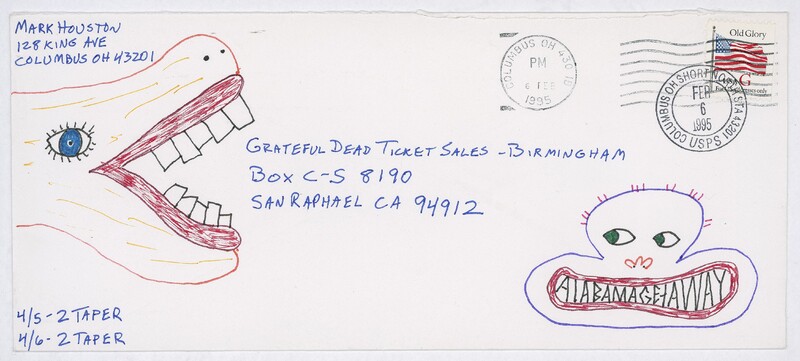 MARK HOUSTON
128 KING AVE
COLUMBUS OH 43201
COLUMBUS OH 430
PM
6 FEB
1995
Old Glory
G
COLUMBUS OH SHORT NORTH STA 43201
FEB
6
1995
USPS
GRATEFUL DEAD TICKET SALES - BIRMINGHAM
BOX C-S 8190
SAN RAPHAEL CA 94912
ALABAMAGETAWAY
4/5 - 2 TAPER
4/6 - 2 TAPER